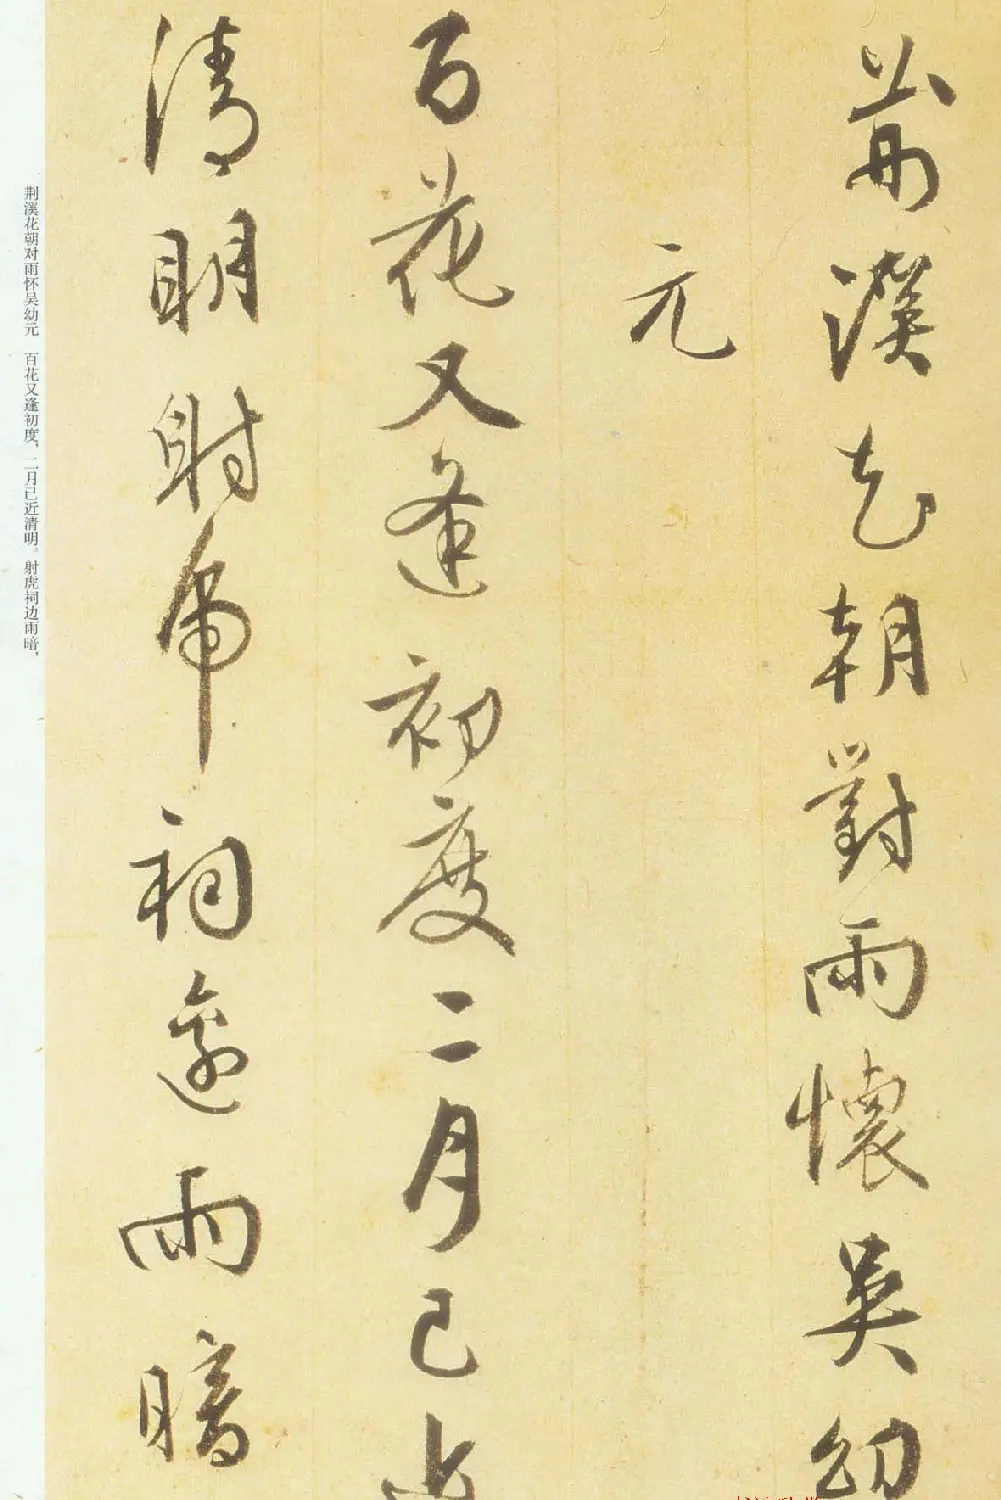 荊溪花朝對雨懷吳幼
元
百花又逢初度二月已近
清明射虎祠邊雨暗
荆溪花朝对雨怀吴幼元　百花又逢初度、二月已近清明。射虎祠边雨暗，